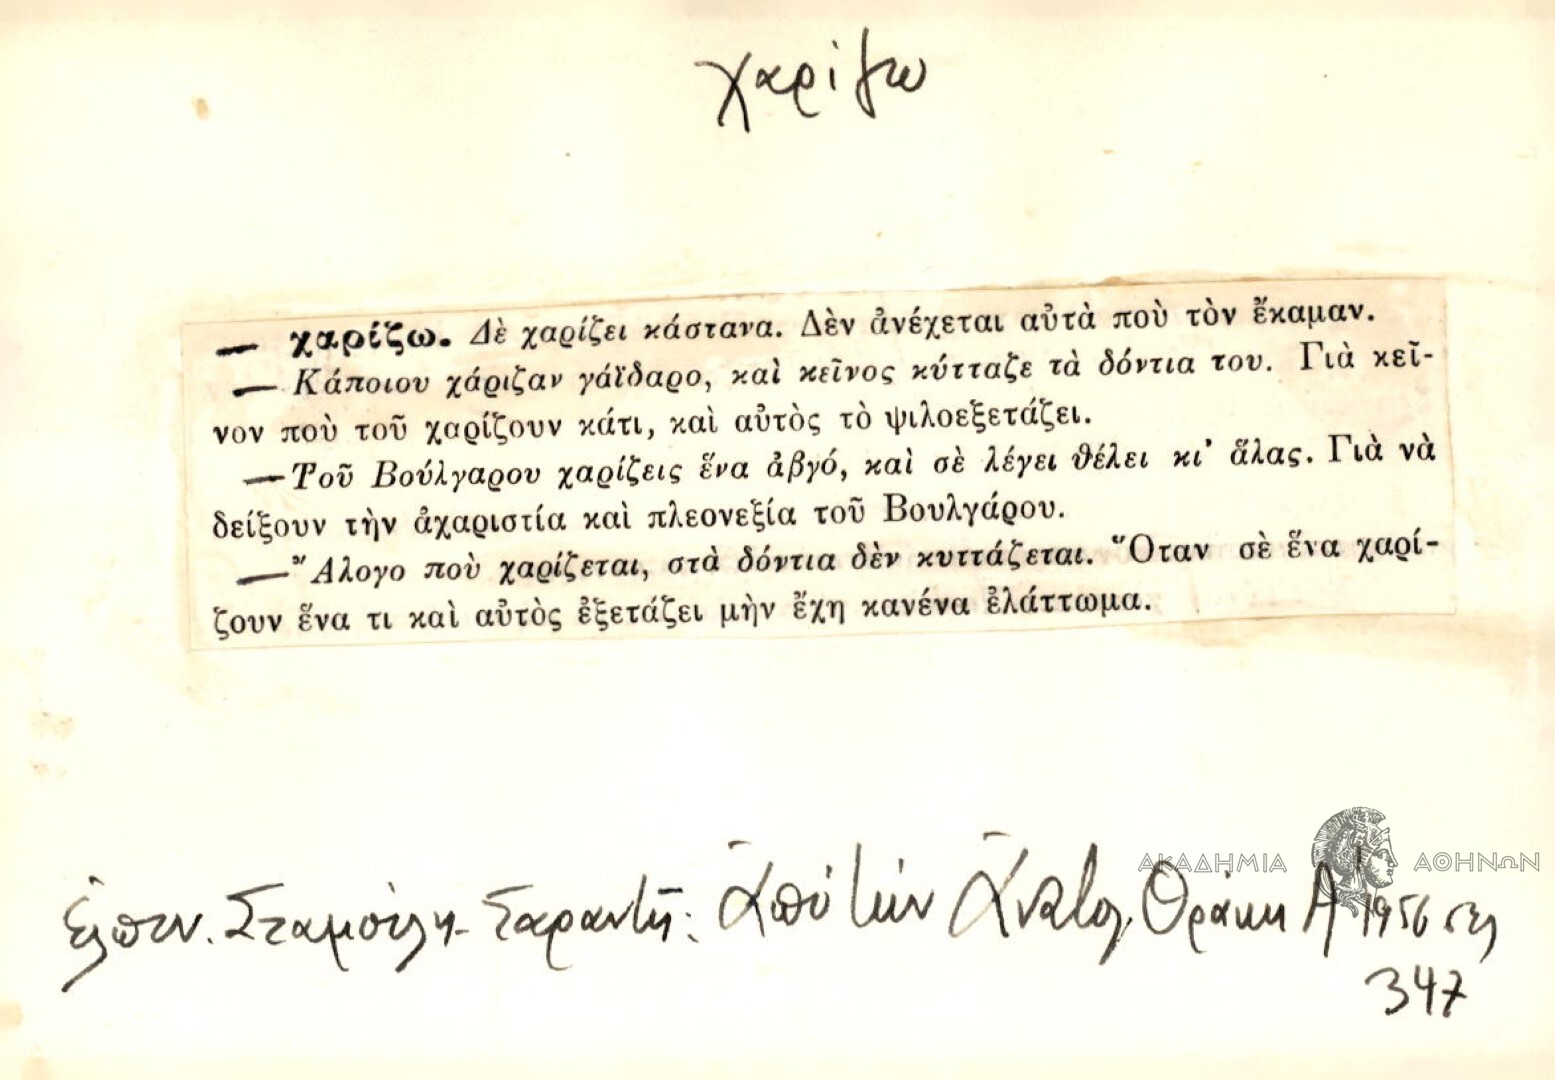 χαρίζω
— χαρίζω. Δὲ χαρίζει κάστανα. Δὲν ἀνέχεται αὐτὰ ποὺ τὸν ἔκαμαν.
— Κάποιου χάριζαν γάϊδαρο, καὶ κεῖνος κύτταζε τὰ δόντια του. Γιὰ κεῖ-
νον ποὺ τοῦ χαρίζουν κάτι, καὶ αὐτὸς τὸ ψιλοεξετάζει.
— Τοῦ Βούλγαρου χαρίζεις ἕνα ἀβγό, καὶ σὲ λέγει θέλει κι᾿ ἅλας. Γιὰ νὰ
δείξουν τὴν ἀχαριστία καὶ πλεονεξία τοῦ Βουλγάρου.
— Ἄλογο ποὺ χαρίζεται, στὰ δόντια δὲν κυττάζεται. Ὅταν σὲ ἕνα χαρί-
ζουν ἕνα τι καὶ αὐτὸς ἐξετάζει μὴν ἔχῃ κανένα ἐλάττωμα.
ΑΚΑΔΗΜΙΑ ΑΘΗΝΩΝ
Ἐλπιν. Σταμούλη-Σαραντῆ: Ἀπὸ τὴν Ἀνατολ. Θράκη Α' 1956 σελ
347